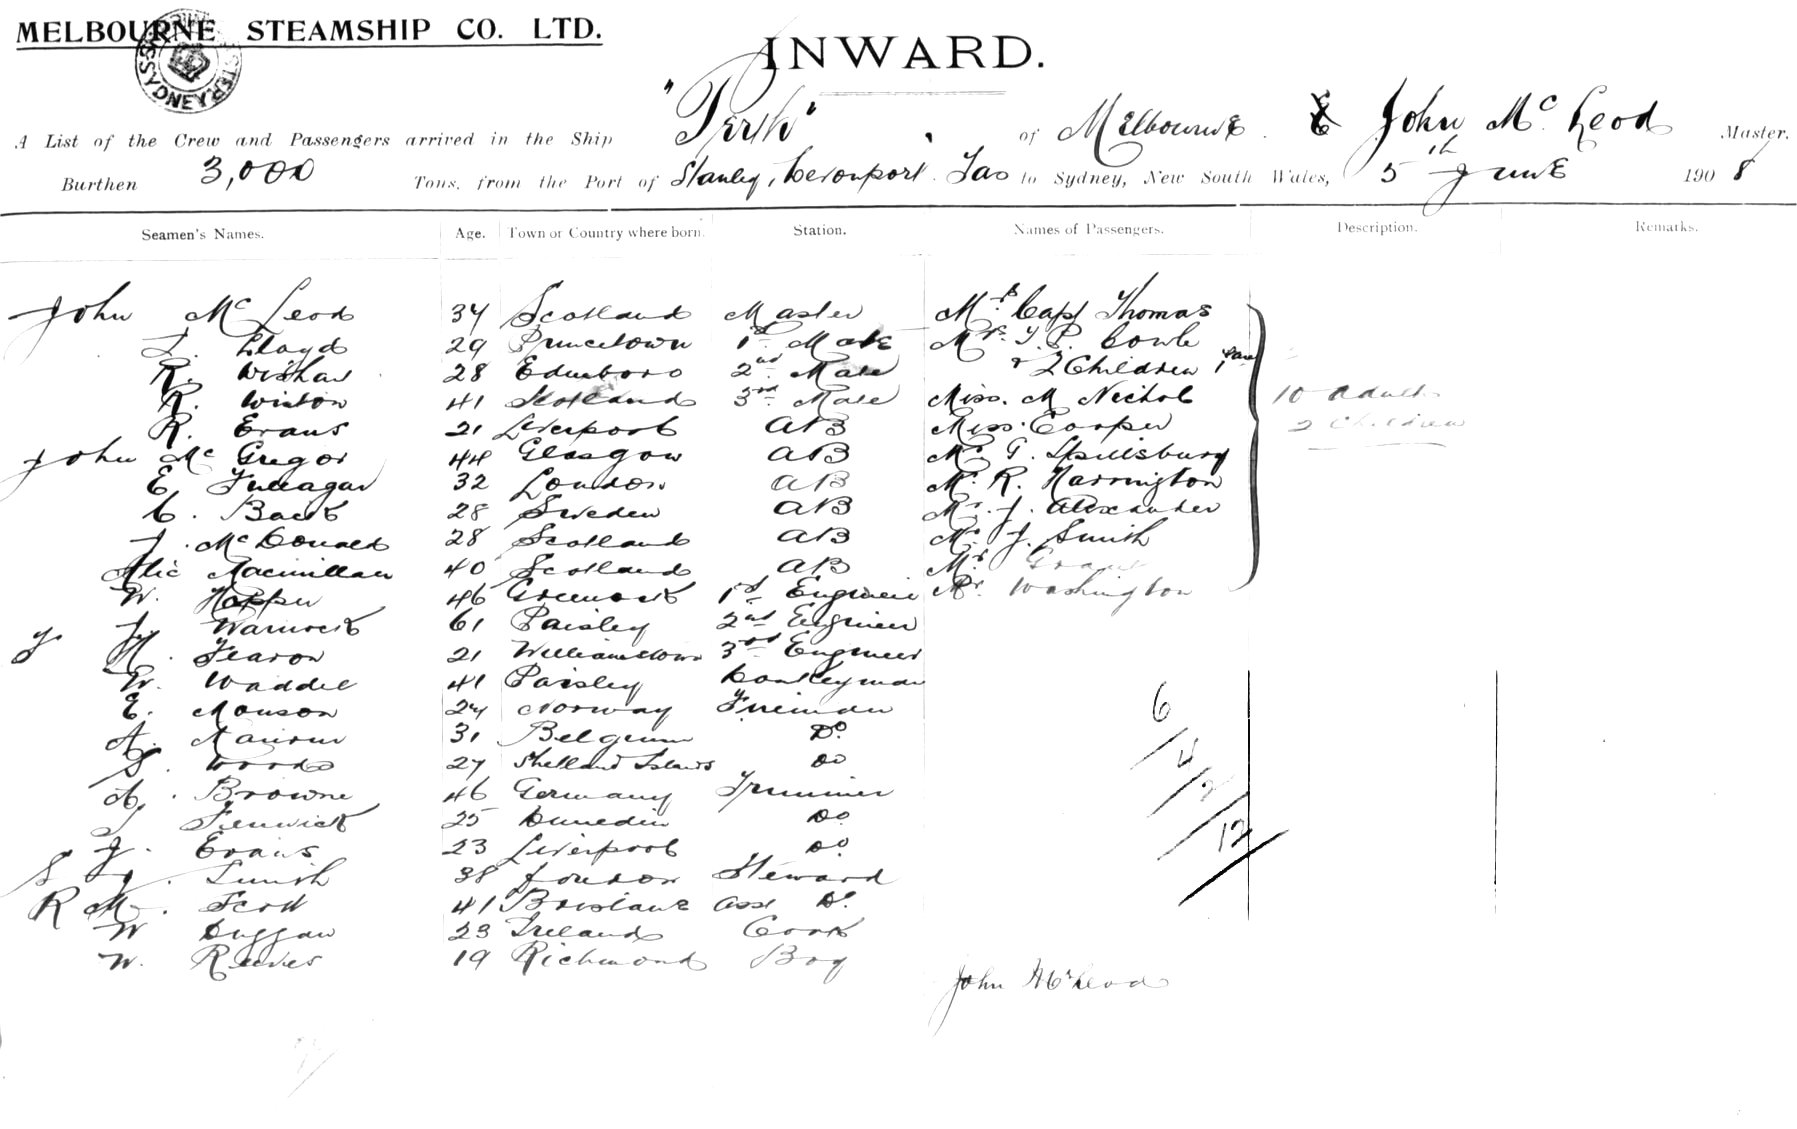 MELBOURNE STEAMSHIP CO. LTD.
SYDNEY
INWARD.
A List of the Crew and Passengers arrived in the Ship "Perth" of Melbourne. John Mc Leod Master.
Burthen 3,000 Tons, from the Port of Stanley, Devonport. Tas to Sydney, New South Wales, 5th June 1908
Seamen's Names. Age. Town or Country where born. Station. Names of Passengers. Description. Remarks.
John Mc Leod 34 Scotland Master Mrs Capt Thomas
L. Lloyd 29 Princetown 1st Mate Mrs. Cowle
R. Wishaw 28 Edinboro 2nd Mate & 2 Children
R. Winton 41 Scotland 3rd Mate Miss. M Nichols 10 adults
R. Evans 21 Liverpool AB Miss. Cooper 2 Children
John Mc Gregor 44 Glasgow AB Mr G. Spillsbury
E. Finnagan 32 London AB Mr R. Harrington
C. Back 28 Sweden AB Mr. J. Alexander
J. McDonald 28 Scotland AB Mr J. Smith
Alic Macmillan 40 Scotland AB Mr Grant
W. Hopper 46 Greenock 1st Engineer Mr. Washington
Warnock 61 Paisley 2nd Engineer
H. Fearon 21 Williamstown 3rd Engineer
W. Waddel 41 Paisley Donkeyman
E. Monson 24 Norway Fireman
A. 31 Belgium Do.
S. Woods 27 Shetland Islands Do
A. Browne 46 Germany Trimmer
J Fenwick 25 Dunedin Do.
J. Evans 23 Liverpool Do.
S J. Smith 38 London Steward
R M. Scott 41 Brisbane Asst Do.
W Duggan 23 Ireland Cook
W. Reeves 19 Richmond Boy
6
4
2
12
John McLeod